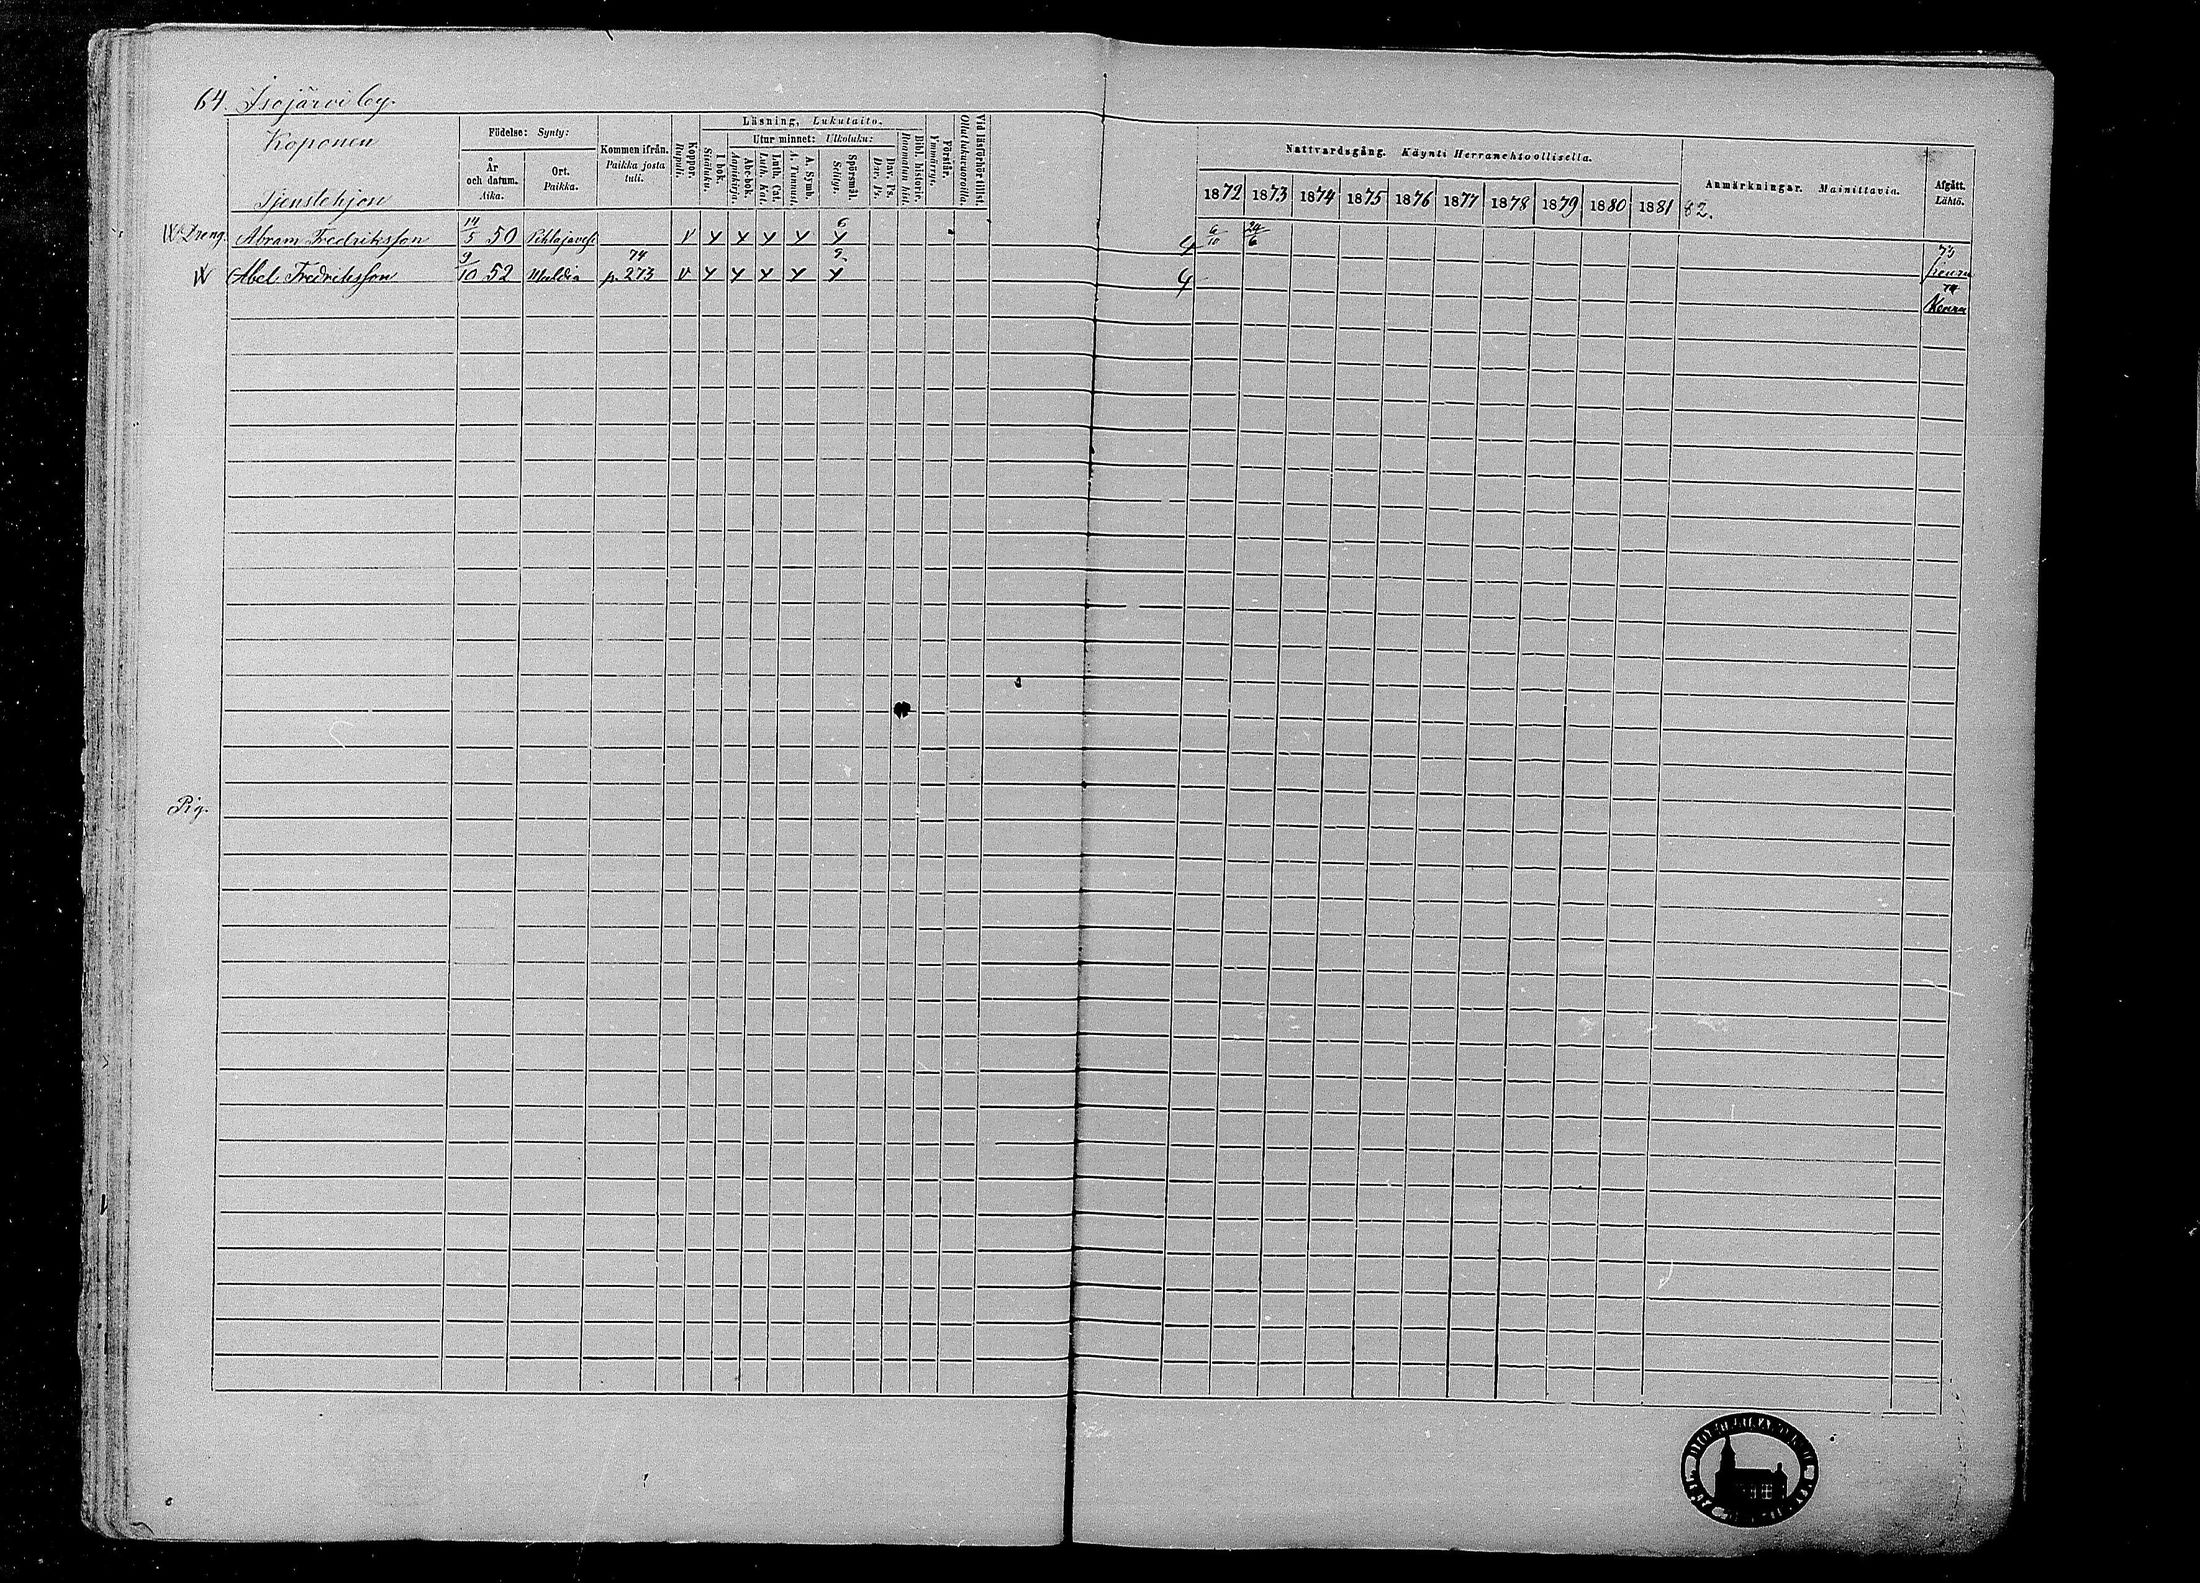 64. Isojärvi by.
Koponen
Tjenstehjon
Födelse: Synty:
År och datum. Aika.
Ort. Paikka.
Kommen ifrån. Paikka josta tuli.
Koppor. Rupuli.
Läsning, Lukutaito.
I bok. Sisäluku.
Utur minnet: Ulkoluku:
Abc-bok. Aapiskirja.
Luth. Cat. Luth. Kat.
A. Symb. A. Tunnust.
Spörsmål. Selitys.
Dav. Ps. Dav. Ps.
Bibl. historie. Raamatun hist.
Förstår. Ymmärrys.
Vid läsförhör tillst. Ollut lukuvuoroilla.
Nattvardsgång. Käynti Herranehtoollisella.
1872 1873 1874 1875 1876 1877 1878 1879 1880 1881 82.
Anmärkningar. Mainittavia.
Afgått. Lähtö.
Dreng. Abram Fredriksson 14/5 50 Pihlajavesi V Y Y Y Y 6 Y 4 6/10 24/6 73
Abel Fredriksson 9/10 52 Multia 74 p. 273 V Y Y Y Y 9 Y 4 74
Pig.